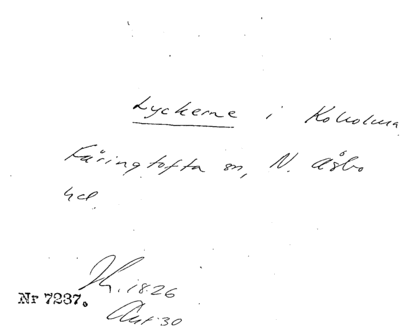 Lyckerne i Koholma,
Färingtofta sn, N. Åsbo
hd.
Nr 7237. 18:26
Akt: 30